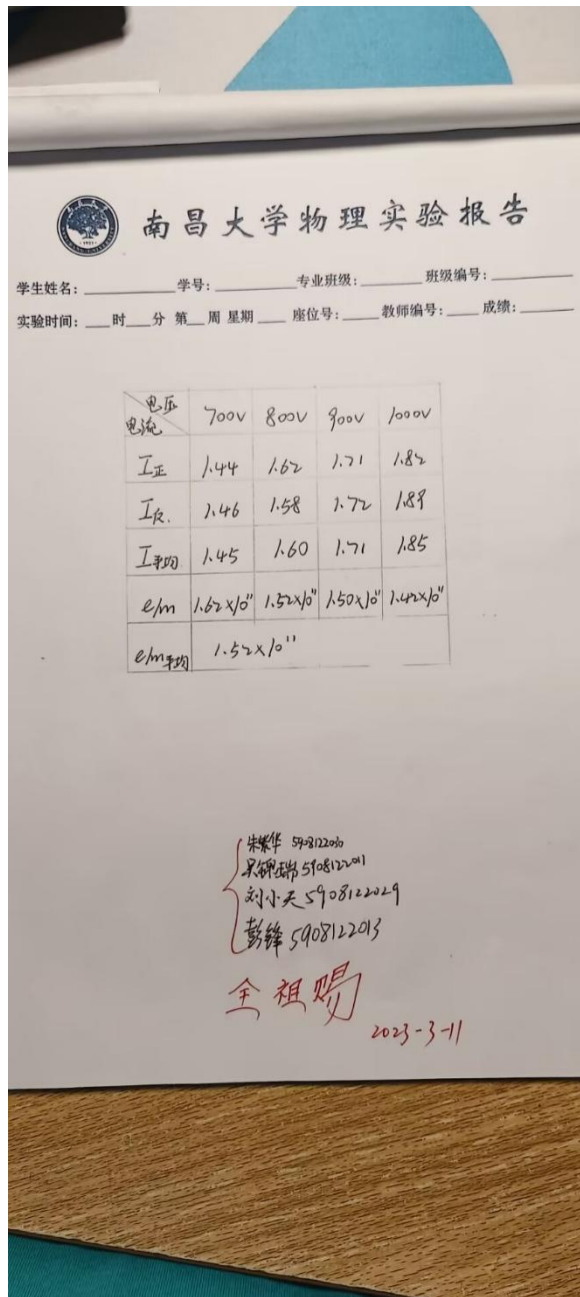 南昌大学物理实验报告
学生姓名: 学号: 专业班级: 班级编号:
实验时间: 时 分 第 周 星期 座位号: 教师编号: 成绩:
电压 电流 700V 800V 900V 1000V
I正 1.44 1.62 1.71 1.82
I反. 1.46 1.58 1.72 1.89
I平均 1.45 1.60 1.71 1.85
e/m 1.62×10¹¹ 1.52×10¹¹ 1.50×10¹¹ 1.42×10¹¹
e/m平均 1.52×10¹¹
5908122030
5908122011
刘小天 5908122029
彭锋 5908122013
全祖赐
2023-3-11